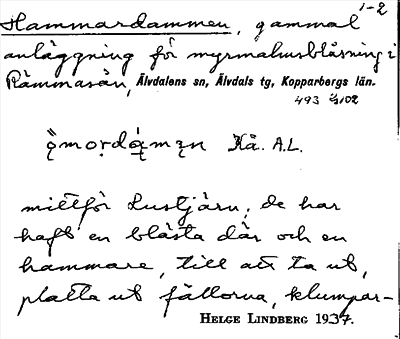 1-2
Hammardammen, gammal
anläggning för myrmalmsblåsning i
Rämmasån, Älvdalens sn, Älvdals tg, Kopparbergs län.
493 2/3102
Kå. A.L.
mittför Lustjärn; de har
haft en blästa där och en
hammare, till att ta ut,
platta ut fällorna, klumpar-
HELGE LINDBERG 1937.